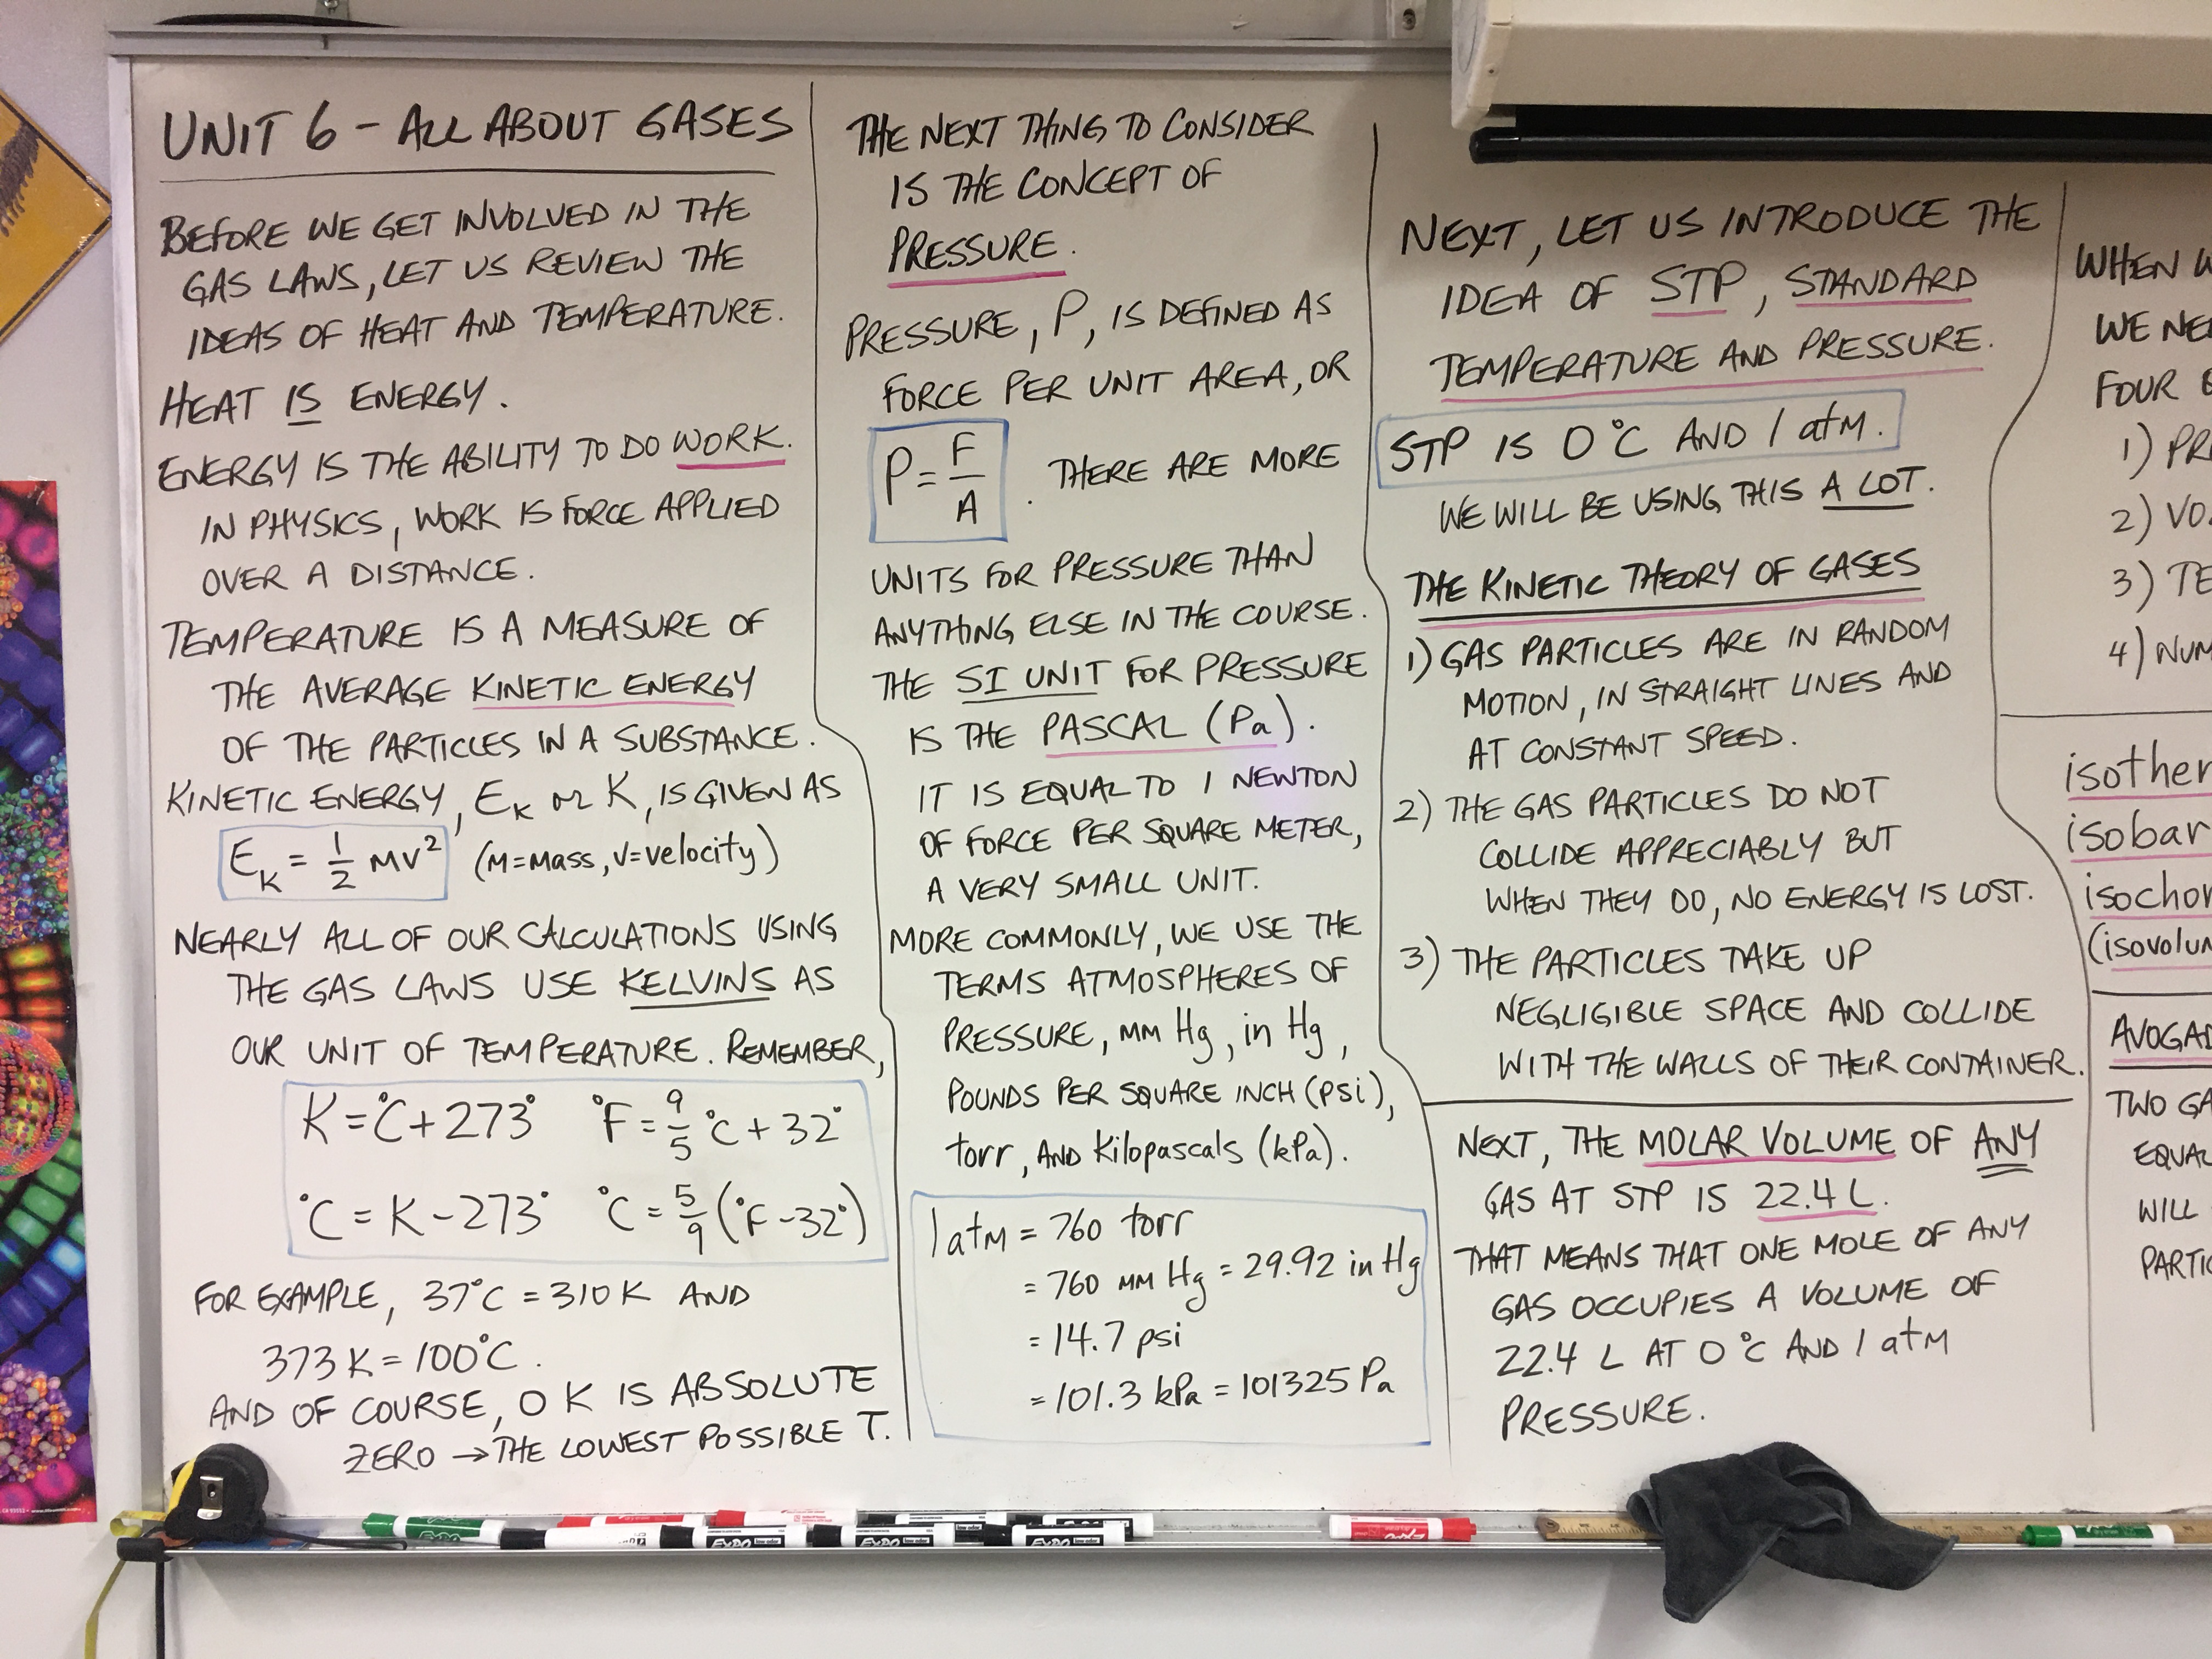 UNIT 6 - ALL ABOUT GASES
BEFORE WE GET INVOLVED IN THE
GAS LAWS, LET US REVIEW THE
IDEAS OF HEAT AND TEMPERATURE.
HEAT IS ENERGY.
ENERGY IS THE ABILITY TO DO WORK.
IN PHYSICS, WORK IS FORCE APPLIED
OVER A DISTANCE.
TEMPERATURE IS A MEASURE OF
THE AVERAGE KINETIC ENERGY
OF THE PARTICLES IN A SUBSTANCE.
KINETIC ENERGY, EK or K, IS GIVEN AS
EK = 1/2 mv² (m=mass, v=velocity)
NEARLY ALL OF OUR CALCULATIONS USING
THE GAS LAWS USE KELVINS AS
OUR UNIT OF TEMPERATURE. REMEMBER,
K=°C+273° °F=9/5 °C+32°
°C=K-273° °C=5/9(°F-32°)
FOR EXAMPLE, 37°C=310K AND
373K=100°C.
AND OF COURSE, 0 K IS ABSOLUTE
ZERO → THE LOWEST POSSIBLE T.
THE NEXT THING TO CONSIDER
IS THE CONCEPT OF
PRESSURE.
PRESSURE, P, IS DEFINED AS
FORCE PER UNIT AREA, OR
P=F/A. THERE ARE MORE
UNITS FOR PRESSURE THAN
ANYTHING ELSE IN THE COURSE.
THE SI UNIT FOR PRESSURE
IS THE PASCAL (Pa).
IT IS EQUAL TO 1 NEWTON
OF FORCE PER SQUARE METER,
A VERY SMALL UNIT.
MORE COMMONLY, WE USE THE
TERMS ATMOSPHERES OF
PRESSURE, mm Hg, in Hg,
POUNDS PER SQUARE INCH (psi),
torr, AND Kilopascals (kPa).
1 atm = 760 torr
= 760 mm Hg = 29.92 in Hg
= 14.7 psi
= 101.3 kPa = 101325 Pa
NEXT, LET US INTRODUCE THE
IDEA OF STP, STANDARD
TEMPERATURE AND PRESSURE.
STP IS 0°C AND 1 atm.
WE WILL BE USING THIS A LOT.
THE KINETIC THEORY OF GASES
1) GAS PARTICLES ARE IN RANDOM
MOTION, IN STRAIGHT LINES AND
AT CONSTANT SPEED.
2) THE GAS PARTICLES DO NOT
COLLIDE APPRECIABLY BUT
WHEN THEY DO, NO ENERGY IS LOST.
3) THE PARTICLES TAKE UP
NEGLIGIBLE SPACE AND COLLIDE
WITH THE WALLS OF THEIR CONTAINER.
NEXT, THE MOLAR VOLUME OF ANY
GAS AT STP IS 22.4 L.
THAT MEANS THAT ONE MOLE OF ANY
GAS OCCUPIES A VOLUME OF
22.4 L AT 0°C AND 1 atm
PRESSURE.
WHEN W
WE NE
FOUR
1) PR
2) VO
3) TE
4) NUM
isother
isobar
isochor
(isovolum
AVOGAD
TWO GA
EQUAL
WILL
PARTIC
EXPO
EXPO
EXPO
EXPO